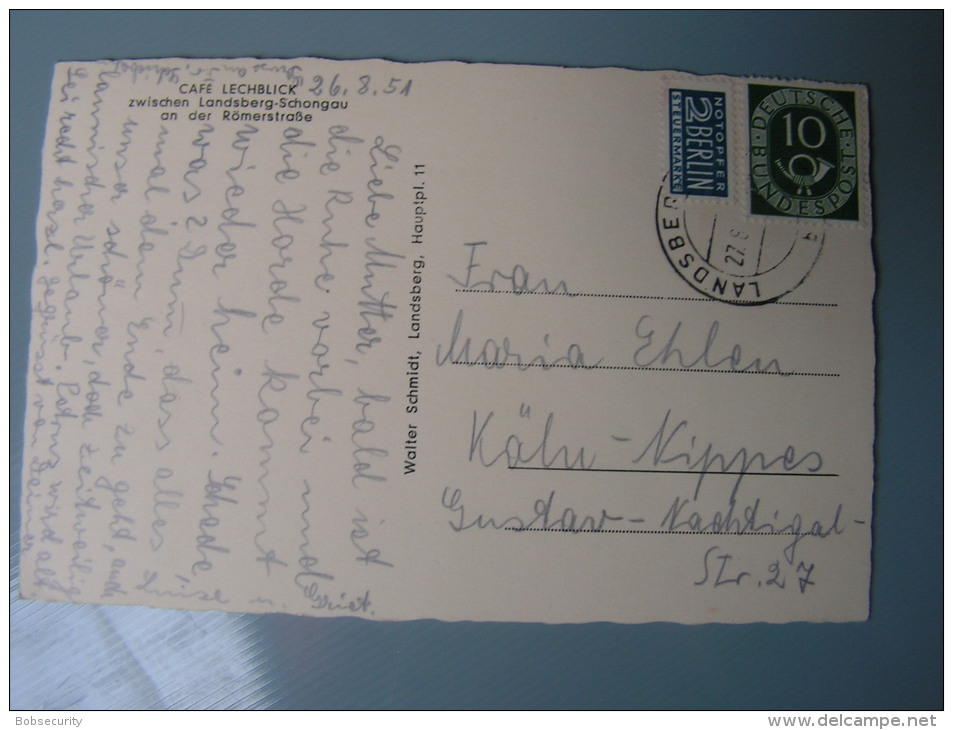 CAFÉ LECHBLICK
zwischen Landsberg-Schongau
an der Römerstraße
26.8.51
Liebe Mutter, bald ist
die Ruhe vorbei und
die Horde kommt
wieder heim. Schade
was? Dumm, dass alles
mal dem Ende zu geht,
unser schöner, doch zeitweilig
Urlaub. wird alt
Sei recht herzl. gegrüsst von Deiner
Walter Schmidt, Landsberg, Hauptpl. 11
NOTOPFER
2 BERLIN
STEUERMARKE
DEUTSCHE
10
BUNDESPOST
LANDSBER
27.8
Frau
Maria Ehlen
Köln-Nippes
Gustav-Nachtigal-
Str. 27
Bobsecurity
www.delcampe.net